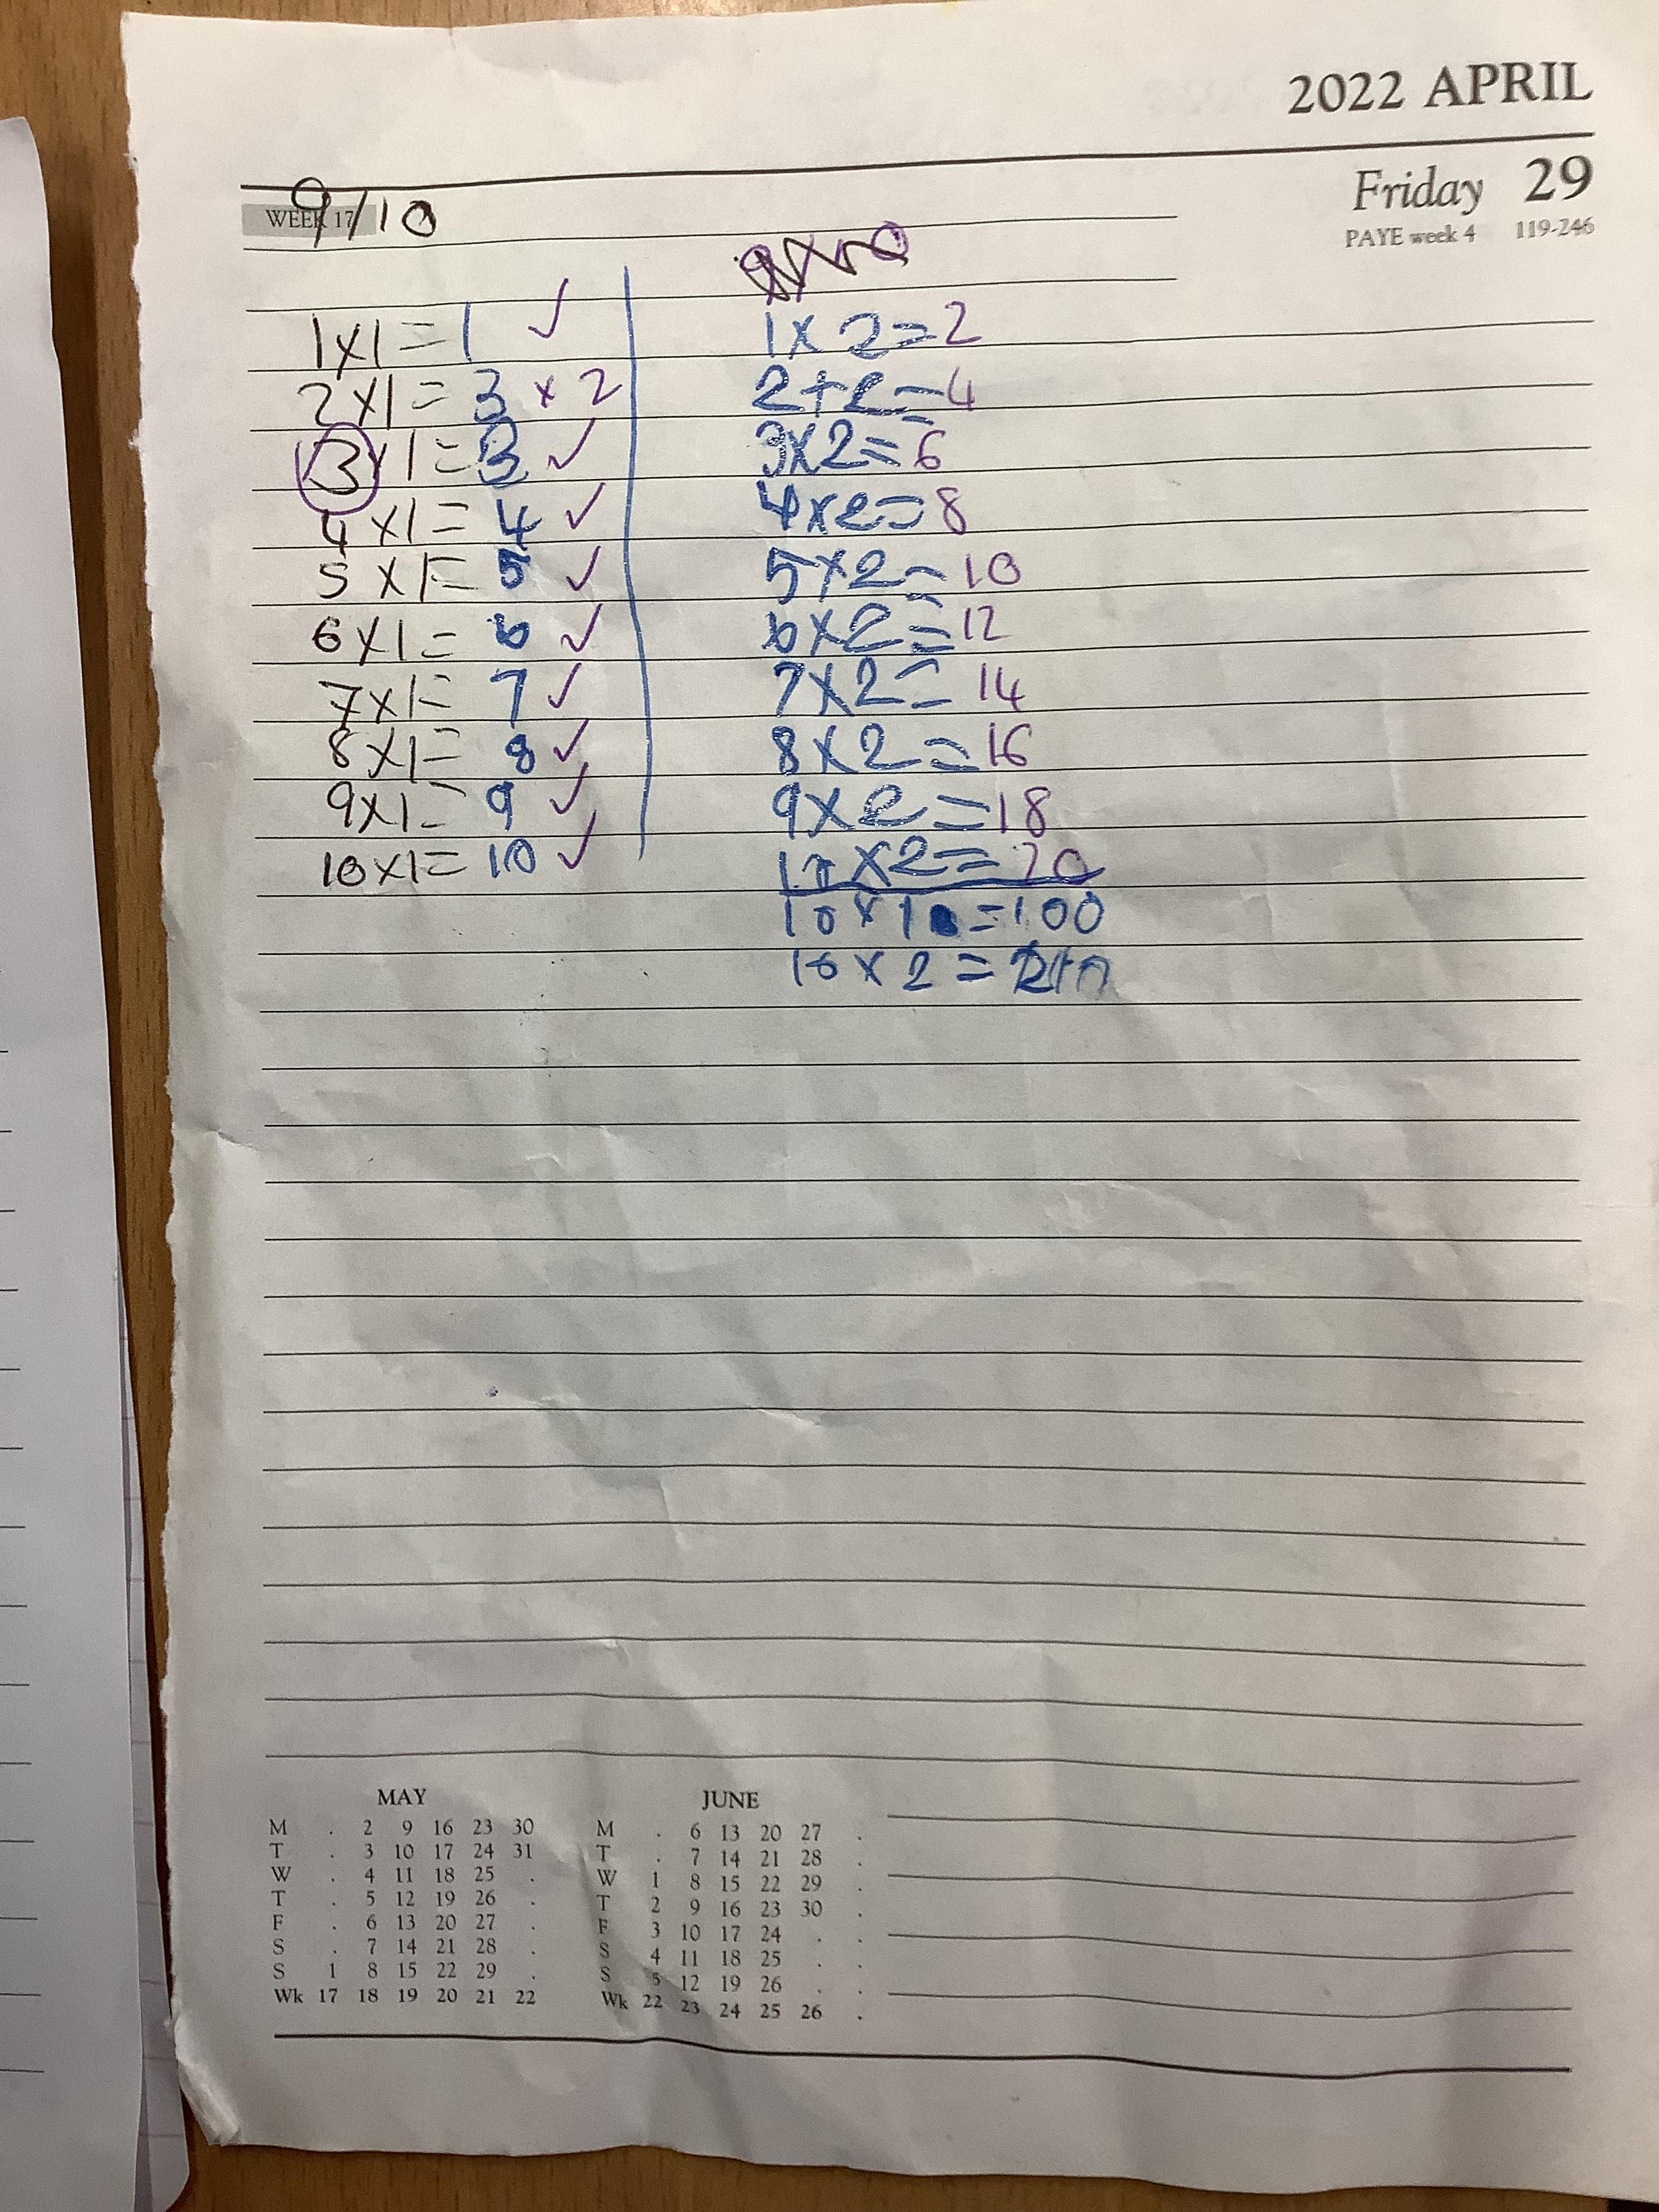 2022 APRIL
Friday 29
PAYE week 4 119-246
WEEK 17
9/10
1x1=1 ✓
2x1=3 x 2
3x1=3 ✓
4x1=4 ✓
5x1=5 ✓
6x1=6 ✓
7x1=7 ✓
8x1=8 ✓
9x1=9 ✓
10x1=10 ✓
1x2=2
2+2=4
3x2=6
4x2=8
5x2=10
6x2=12
7x2=14
8x2=16
9x2=18
x2=20
10x10=100
10x2=
MAY
M . 2 9 16 23 30
T . 3 10 17 24 31
W . 4 11 18 25 .
T . 5 12 19 26 .
F . 6 13 20 27 .
S . 7 14 21 28 .
S 1 8 15 22 29 .
Wk 17 18 19 20 21 22
JUNE
M . 6 13 20 27 .
T . 7 14 21 28 .
W 1 8 15 22 29 .
T 2 9 16 23 30 .
F 3 10 17 24 . .
S 4 11 18 25 . .
S 5 12 19 26 . .
Wk 22 23 24 25 26 .